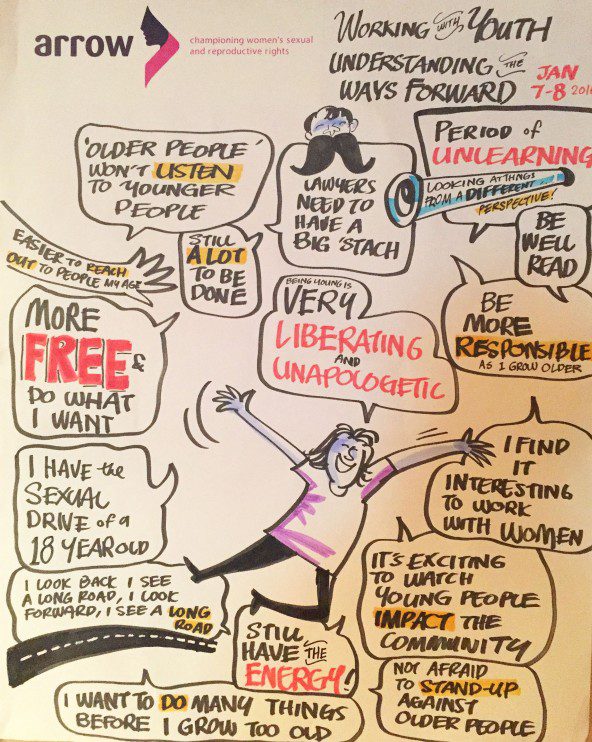 arrow
championing women's sexual
and reproductive rights
WORKING WITH YOUTH
UNDERSTANDING THE
WAYS FORWARD
JAN
7-8
'OLDER PEOPLE'
WON'T LISTEN
TO YOUNGER
PEOPLE
LAWYERS
NEED TO
HAVE A
BIG 'STACH
PERIOD of
UNLEARNING
LOOKING AT THINGS
FROM A DIFFERENT...
PERSPECTIVE!
EASIER TO REACH
OUT TO PEOPLE MY AGE
STILL
A LOT
TO BE
DONE
BE
WELL
READ
BEING YOUNG IS
VERY
LIBERATING
AND
UNAPOLOGETIC
BE
MORE
RESPONSIBLE
AS I GROW OLDER
MORE
FREE &
DO WHAT
I WANT
I FIND
IT
INTERESTING
TO WORK
WITH WOMEN
I HAVE the
SEXUAL
DRIVE of a
18 YEAR OLD
IT'S EXCITING
TO WATCH
YOUNG PEOPLE
IMPACT THE
COMMUNITY
I LOOK BACK I SEE
A LONG ROAD, I LOOK
FORWARD, I SEE A LONG
ROAD
STILL
HAVE THE
ENERGY!
NOT AFRAID
TO STAND-UP
AGAINST
OLDER PEOPLE
I WANT TO DO MANY THINGS
BEFORE I GROW TOO OLD